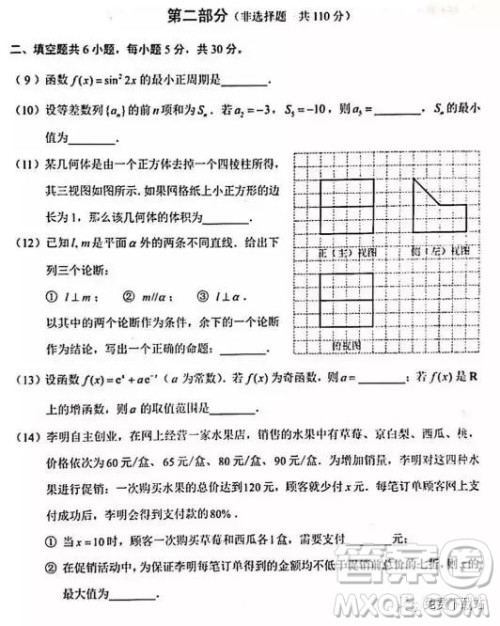 第二部分（非选择题 共110分）
二、填空题共6小题，每小题5分，共30分。
（9）函数 f(x)=sin²2x 的最小正周期是________.
（10）设等差数列{aₙ}的前n项和为Sₙ. 若a₂=−3，S₅=−10，则a₅=________，Sₙ的最小
值为________.
（11）某几何体是由一个正方体去掉一个四棱柱所得，
其三视图如图所示. 如果网格纸上小正方形的边
长为1，那么该几何体的体积为________.
（12）已知l, m是平面α外的两条不同直线. 给出下
列三个论断：
① l⊥m； ② m//α； ③ l⊥α.
以其中的两个论断作为条件，余下的一个论断
作为结论，写出一个正确的命题：________.
正（主）视图
侧（左）视图
俯视图
（13）设函数 f(x)=eˣ+ae⁻ˣ（a为常数）. 若f(x)为奇函数，则a=________；若f(x)是R
上的增函数，则a的取值范围是________.
（14）李明自主创业，在网上经营一家水果店，销售的水果中有草莓、京白梨、西瓜、桃，
价格依次为60元/盒、65元/盒、80元/盒、90元/盒. 为增加销量，李明对这四种水
果进行促销：一次购买水果的总价达到120元，顾客就少付x元. 每笔订单顾客网上支
付成功后，李明会得到支付款的80%.
① 当x=10时，顾客一次购买草莓和西瓜各1盒，需要支付________元；
② 在促销活动中，为保证李明每笔订单得到的金额均不低于促销前总价的七折，则x的
最大值为________.
答案圈